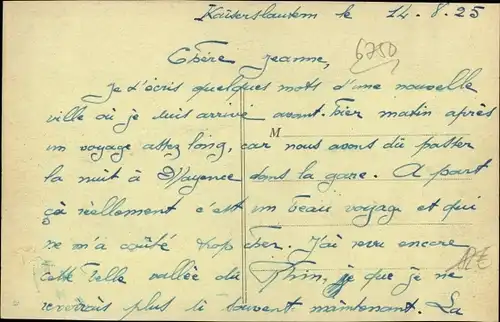 Kaiserslautern le 14.8.25
6750
Chère Jeanne,
Je t'écris quelques mots d'une nouvelle
ville où je suis arrivé avant-hier matin après
M
un voyage assez long, car nous avons dû passer
la nuit à Mayence dans la gare. A part
ça réellement c'est un beau voyage et qui
ne m'a coûté trop cher. J'ai revu encore
cette belle vallée du Rhin, je que je ne
reverrais plus si souvent maintenant. La